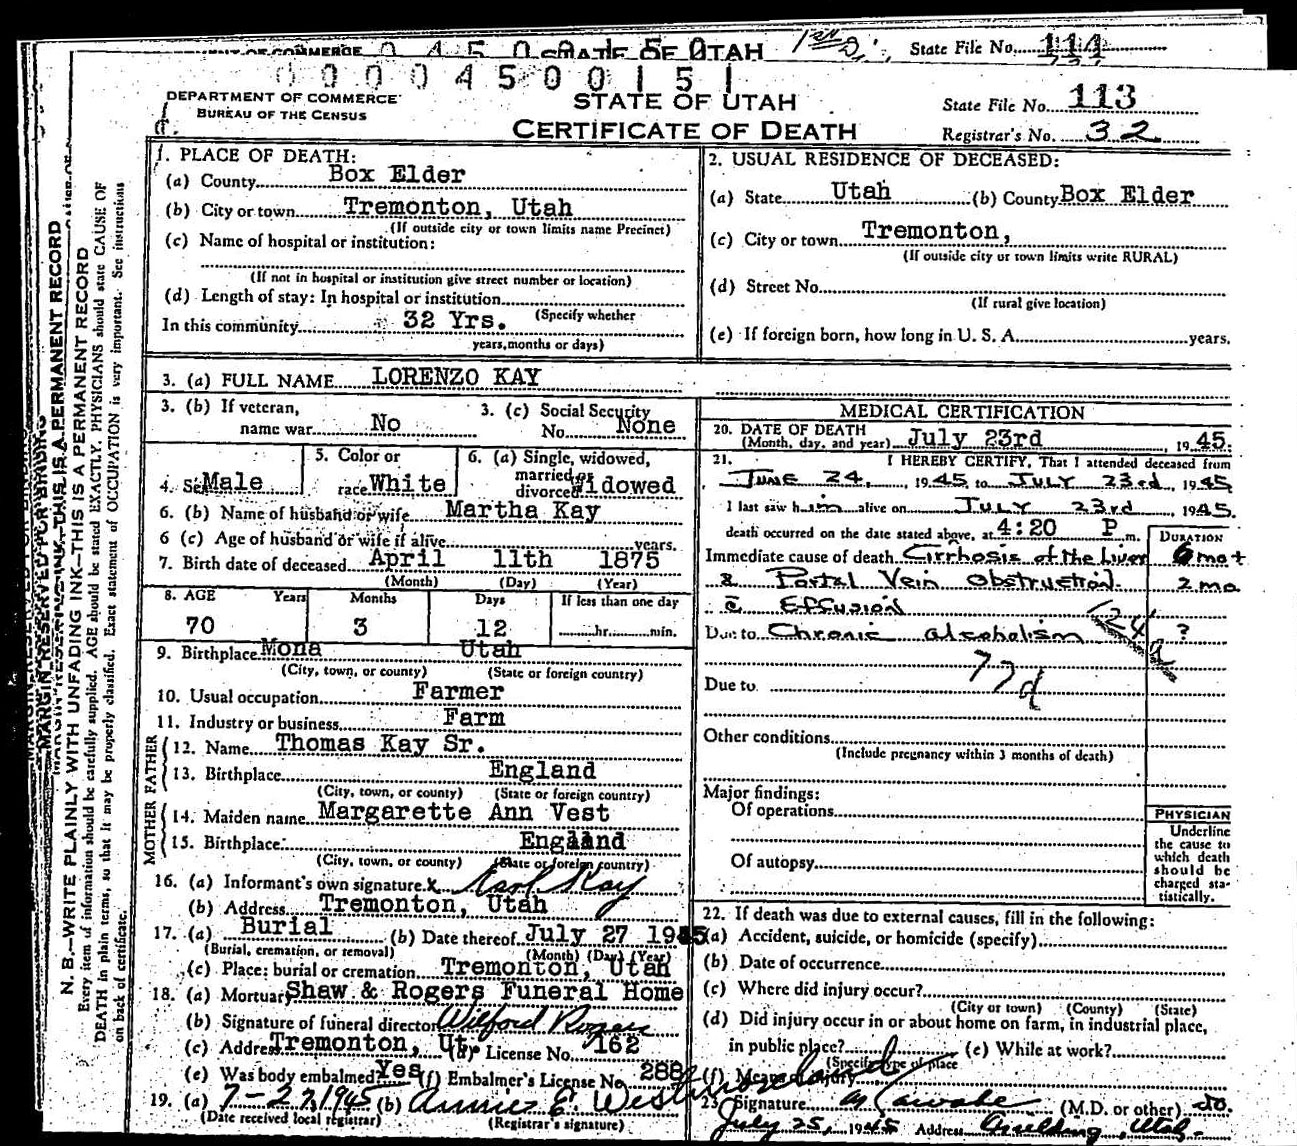 STATE OF UTAH
State File No. 114
0000450151
DEPARTMENT OF COMMERCE
BUREAU OF THE CENSUS
STATE OF UTAH
CERTIFICATE OF DEATH
State File No. 113
Registrar's No. 32
MARGIN RESERVED FOR BINDING
N. B.—WRITE PLAINLY WITH UNFADING INK—THIS IS A PERMANENT RECORD
Every item of information should be carefully supplied. AGE should be stated EXACTLY. PHYSICIANS should state CAUSE OF
DEATH in plain terms, so that it may be properly classified. Exact statement of OCCUPATION is very important. See instructions
on back of certificate.
1. PLACE OF DEATH:
(a) County Box Elder
(b) City or town Tremonton, Utah
(If outside city or town limits name Precinct)
(c) Name of hospital or institution:
(If not in hospital or institution give street number or location)
(d) Length of stay: In hospital or institution
(Specify whether
In this community 32 Yrs.
years, months or days)
2. USUAL RESIDENCE OF DECEASED:
(a) State Utah (b) County Box Elder
(c) City or town Tremonton,
(If outside city or town limits write RURAL)
(d) Street No.
(If rural give location)
(e) If foreign born, how long in U. S. A. years.
3. (a) FULL NAME LORENZO KAY
3. (b) If veteran,
name war No
3. (c) Social Security
No. None
4. Sex Male
5. Color or
race White
6. (a) Single, widowed,
married or
divorced Widowed
6. (b) Name of husband or wife Martha Kay
6 (c) Age of husband or wife if alive years.
7. Birth date of deceased April 11th 1875
(Month) (Day) (Year)
8. AGE Years Months Days If less than one day
70 3 12 hr. min.
9. Birthplace Mona Utah
(City, town, or county) (State or foreign country)
10. Usual occupation Farmer
11. Industry or business Farm
FATHER
12. Name Thomas Kay Sr.
13. Birthplace England
(City, town, or county) (State or foreign country)
MOTHER
14. Maiden name Margarette Ann Vest
15. Birthplace England
(City, town, or county) (State or foreign country)
16. (a) Informant's own signature x Earl Kay
(b) Address Tremonton, Utah
17. (a) Burial (b) Date thereof July 27 1945
(Burial, cremation, or removal) (Month) (Day) (Year)
(c) Place; burial or cremation Tremonton, Utah
18. (a) Mortuary Shaw & Rogers Funeral Home
(b) Signature of funeral director Wilford Rogers
(c) Address Tremonton, Ut. (d) License No. 162
(e) Was body embalmed Yes (f) Embalmer's License No. 288
19. (a) 7-27, 1945 (b) Annie E. Westmoreland
(Date received local registrar) (Registrar's signature)
MEDICAL CERTIFICATION
20. DATE OF DEATH
(Month, day, and year) July 23rd, 1945.
21. I HEREBY CERTIFY, That I attended deceased from
June 24, 1945 to July 23rd, 1945
I last saw him alive on July 23rd, 1945.
death occurred on the date stated above, at 4:20 P. m.
DURATION
Immediate cause of death Cirrhosis of the Liver 6 mo +
& Portal Vein Obstruction 2 mo
c̄ Effusion
Due to Chronic alcoholism ?
124a
77d
Due to
Other conditions
(Include pregnancy within 3 months of death)
Major findings:
Of operations
Of autopsy
PHYSICIAN
Underline
the cause to
which death
should be
charged sta-
tistically.
22. If death was due to external causes, fill in the following:
(a) Accident, suicide, or homicide (specify)
(b) Date of occurrence
(c) Where did injury occur?
(City or town) (County) (State)
(d) Did injury occur in or about home on farm, in industrial place,
in public place? (e) While at work?
(Specify type of place
(f) Means of injury
23 Signature (M.D. or other) do.
July 25, 1945 Address Garland, Utah